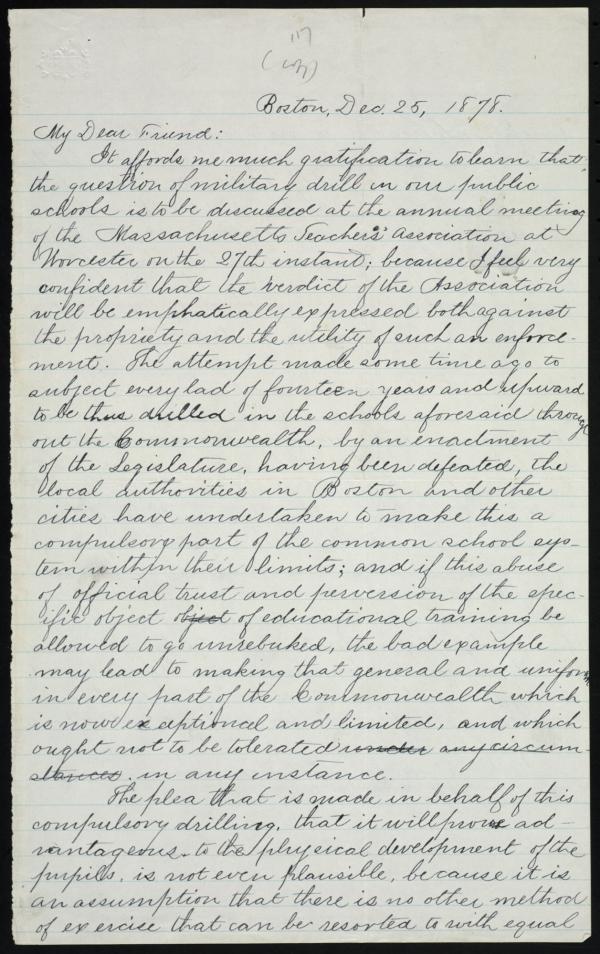 (copy)
Boston, Dec. 25, 1878.
My Dear Friend:
It affords me much gratification to learn that
the question of military drill in our public
schools is to be discussed at the annual meeting
of the Massachusetts Teachers' Association at
Worcester on the 27th instant; because I feel very
confident that the verdict of the Association
will be emphatically expressed both against
the propriety and the utility of such an enforce-
ment. The attempt made some time ago to
subject every lad of fourteen years and upward
to be thus drilled in the schools aforesaid through
out the Commonwealth, by an enactment
of the Legislature, having been defeated, the
local authorities in Boston and other
cities have undertaken to make this a
compulsory part of the common school sys-
tem within their limits; and if this abuse
of official trust and perversion of the spec-
ific object object of educational training be
allowed to go unrebuked, the bad example
may lead to making that general and uniform
in every part of the Commonwealth which
is now exceptional and limited, and which
ought not to be tolerated under any circum-
stances. in any instance.
The plea that is made in behalf of this
compulsory drilling, that it will prove ad-
vantageous to the physical development of the
pupils, is not even plausible, because it is
an assumption that there is no other method
of exercise that can be resorted to with equal